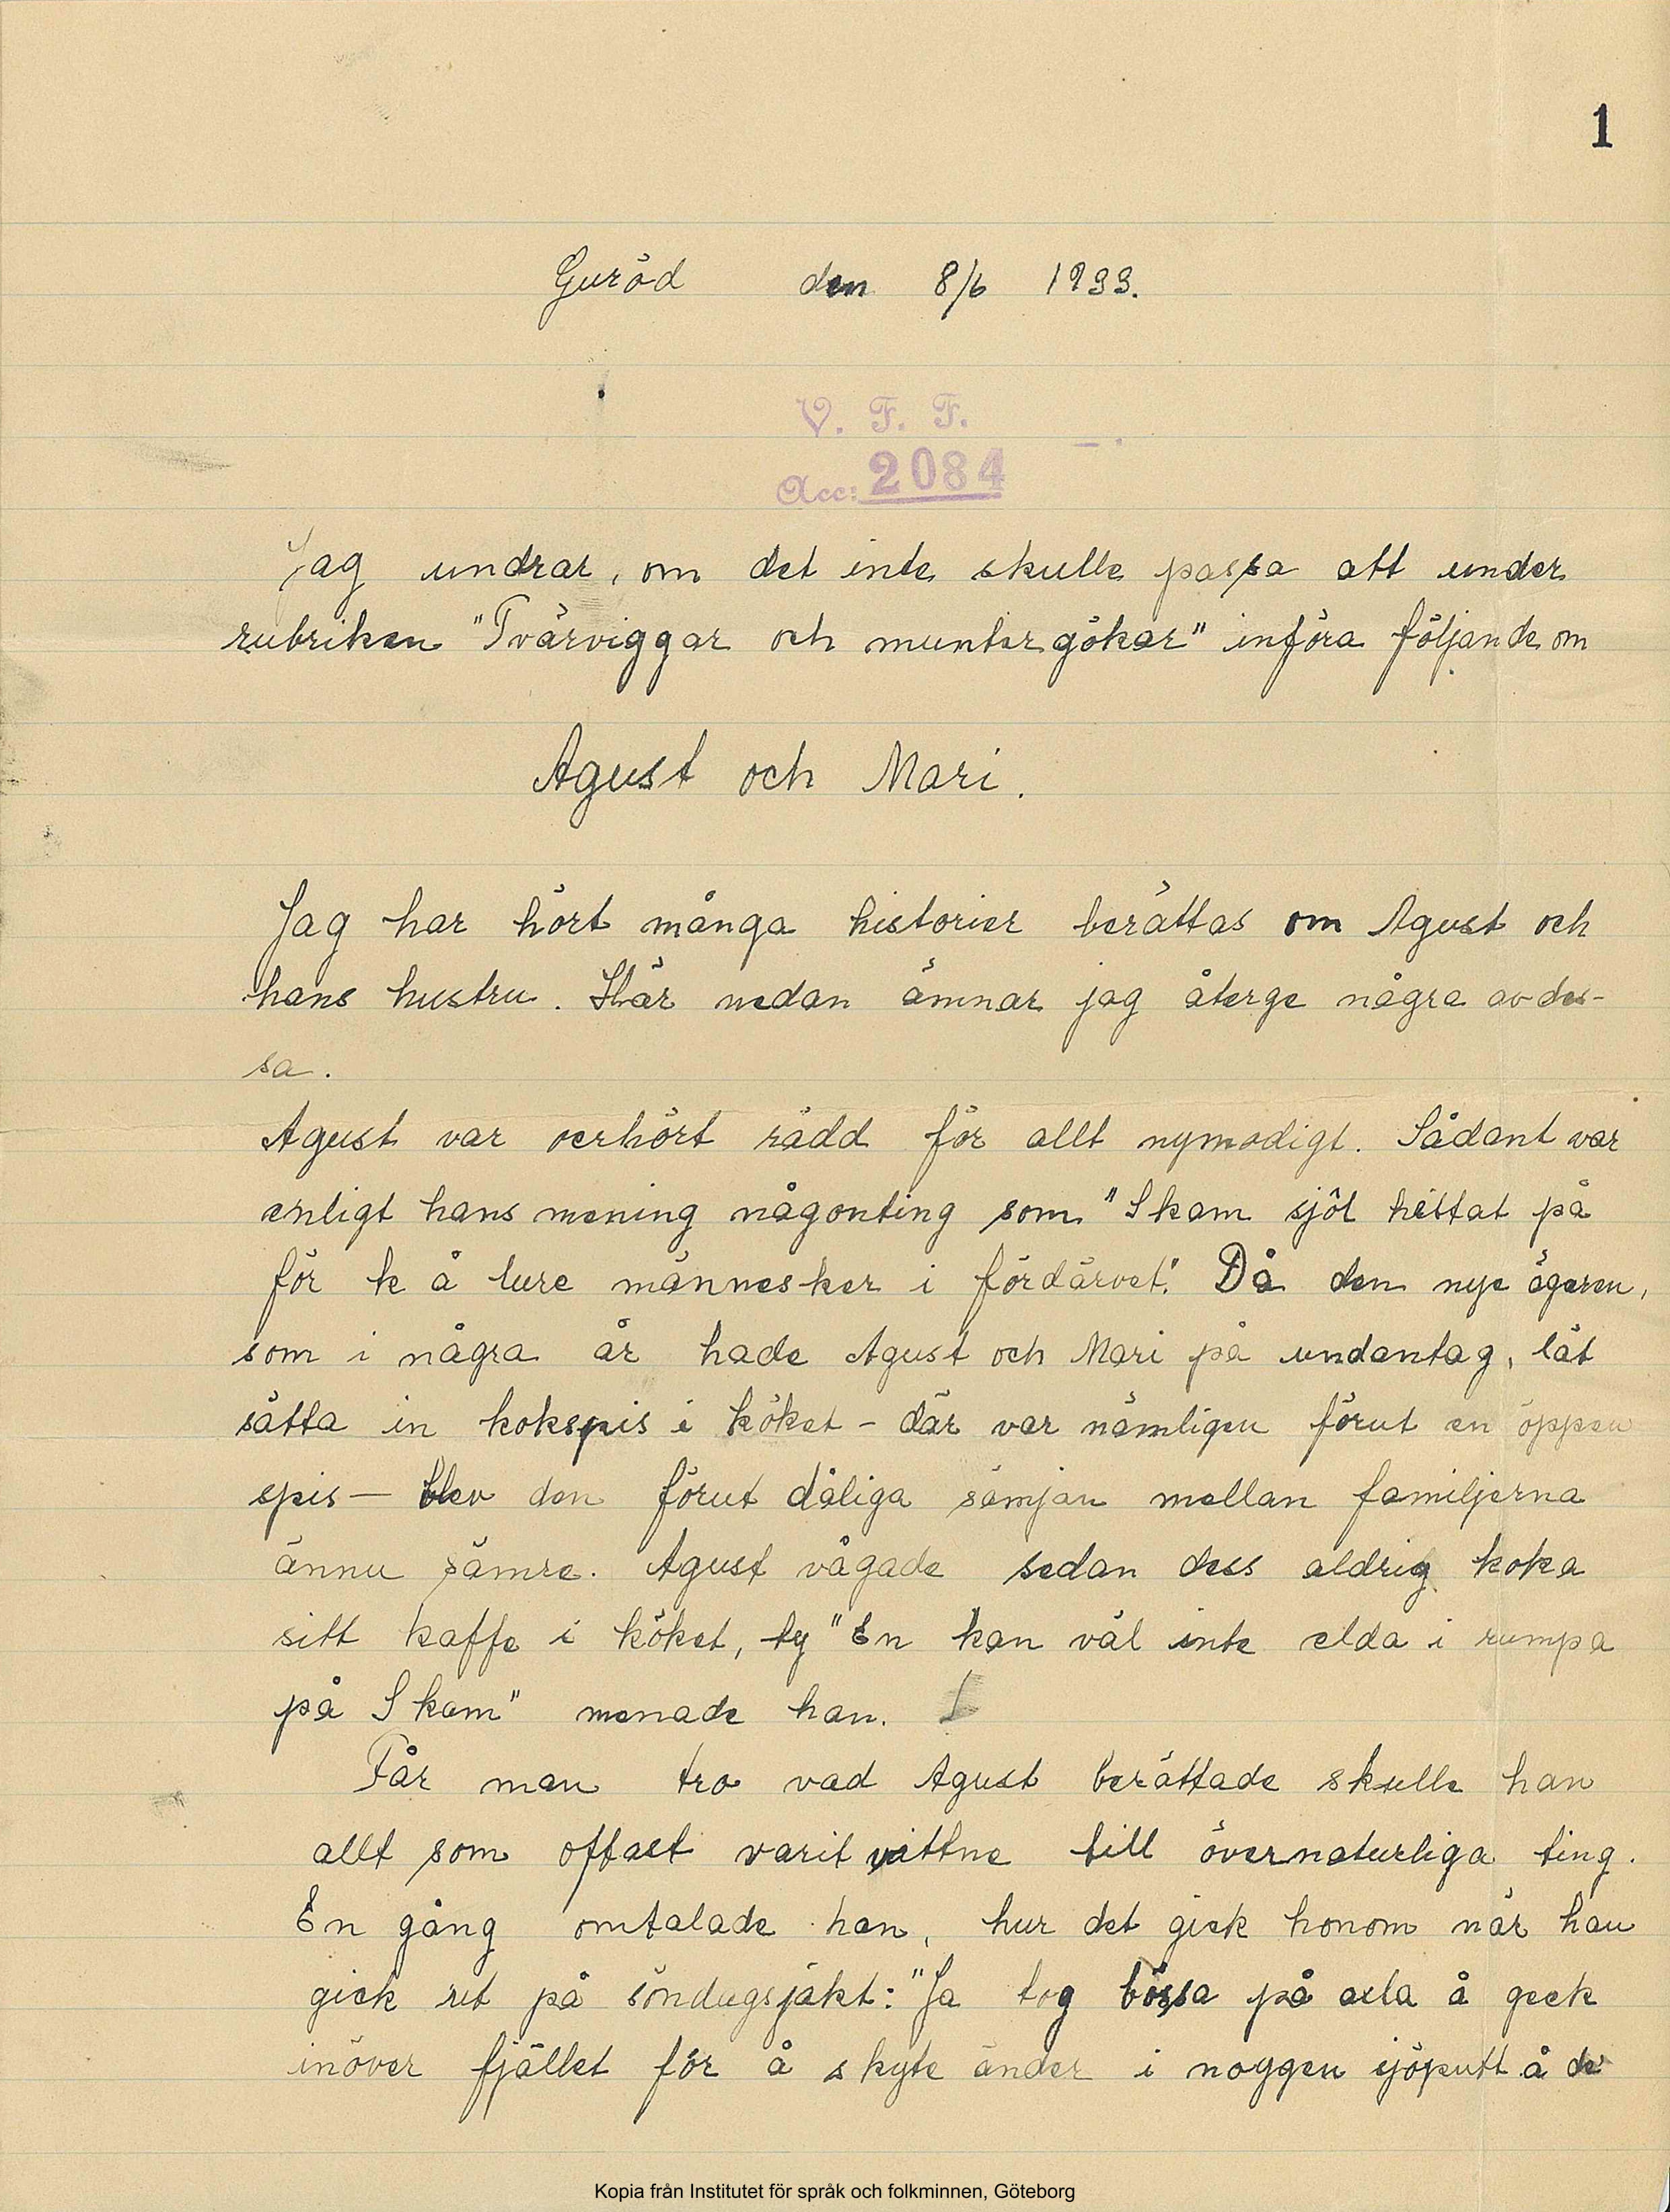 1
Guröd den 8/6 1933.
V. F. F.
Acc: 2084
Jag undrar, om det inte skulle passa att under
rubriken "Tvärviggar och muntergökar" införa följande om
Agust och Mari.
Jag har hört många historier berättas om Agust och
hans hustru. Här nedan ämnar jag återge några av des-
sa.
Agust var oerhört rädd för allt nymodigt. Sådant var
enligt hans mening någonting som "Skam sjöl hettat på
för te å lure männesker i fördärvet". Då den nye ägaren,
som i några år hade Agust och Mari på undantag, lät
sätta in kokspis i köket – där var nämligen förut en öppen
spis – blev den förut dåliga sämjan mellan familjerna
ännu sämre. Agust vågade sedan dess aldrig koka
sitt kaffe i köket, ty "En kan väl inte elda i rumpa
på Skam" menade han.
Får man tro vad Agust berättade skulle han
allt som oftast varit vittne till övernaturliga ting.
En gång omtalade han, hur det gick honom när han
gick ut på söndagsjakt: "Ja tog bössa på axla å geck
inöver fjället för å skyte änder i noggen sjöputt å de
Kopia från Institutet för språk och folkminnen, Göteborg